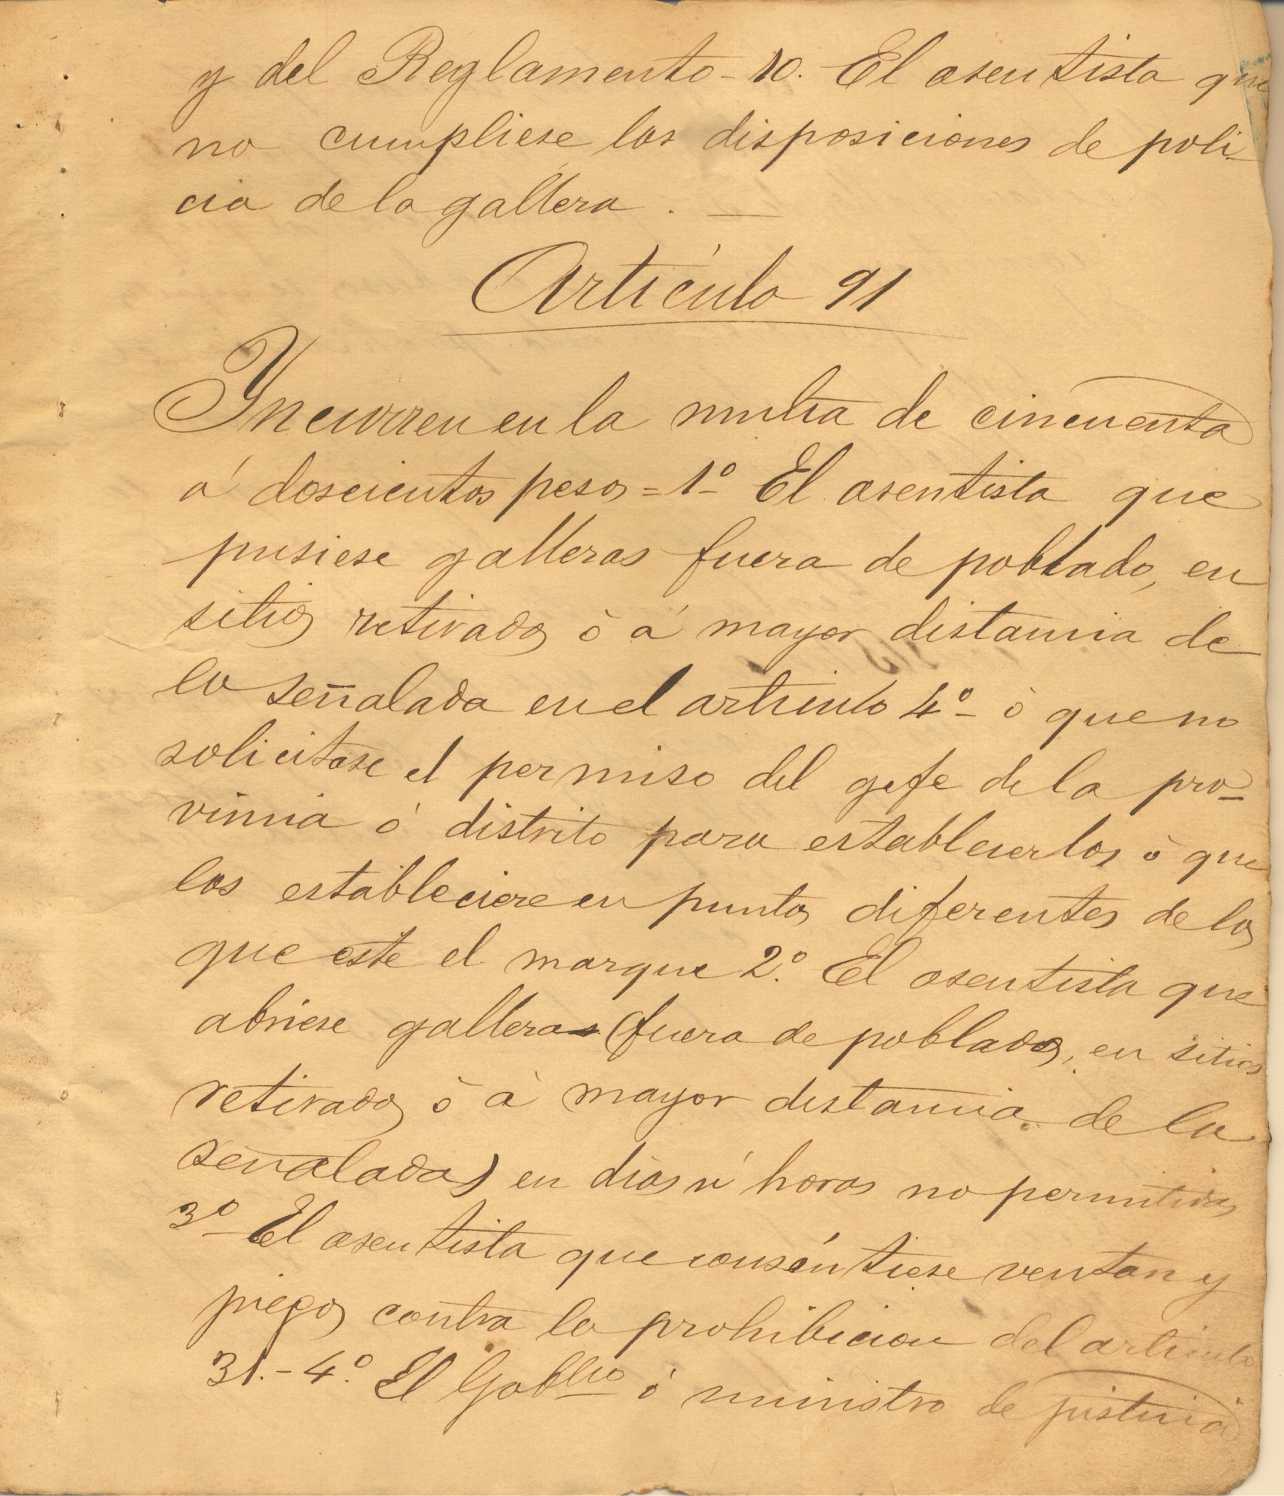 y del Reglamento - 10. El asentista que
no cumpliese las disposiciones de poli-
cia de la gallera . —
Artículo 91
Yncurren en la multa de cincuenta
á doscientos pesos = 1º El asentista que
pusiese galleras fuera de poblado, en
sitios retirados ò á mayor distancia de
la señalada en el articulo 4º - ò que no
solicitase el permiso del gefe de la pro-
vincia ó distrito para establecerlas ò que
las estableciere en puntos diferentes de los
que este el marque 2º. El asentista que
abriese galleras (fuera de poblados, en sitios
retirados ò á mayor distancia de la
señalada) en dias ú horas no permitidas
3º El asentista que consintiese ventan y
juegos contra la prohibicion del articulo
31. - 4º. El Gobllo ó ministro de justicia